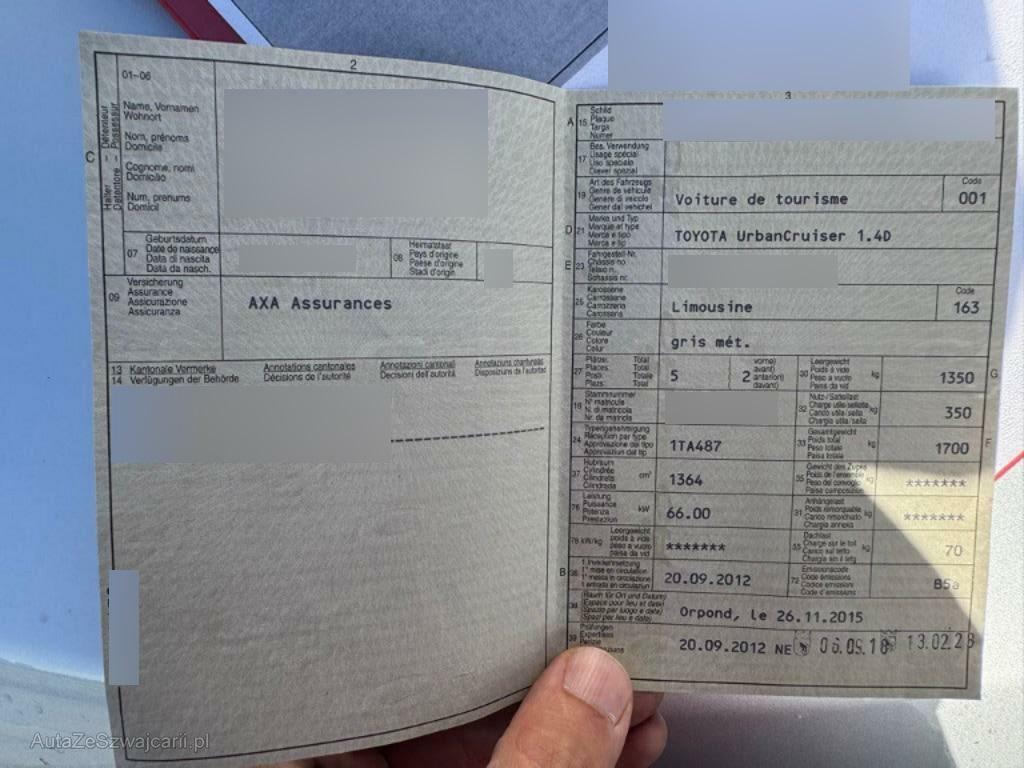 2
01-06
Name, Vornamen
Wohnort
Nom, prénoms
Domicile
Cognome, nomi
Domicilio
Num, prenums
Domicil
C
Halter – Détenteur
Detentore – Possessur
07
Geburtsdatum
Date de naissance
Data di nascita
Data da nasch.
08
Heimatstaat
Pays d'origine
Paese d'origine
Stadi d'origin
09
Versicherung
Assurance
Assicurazione
Assicuranza
AXA Assurances
13 Kantonale Vermerke Annotations cantonales Annotazioni cantonali Annotaziuns chantunalas
14 Verfügungen der Behörde Décisions de l'autorité Decisioni dell'autorità Disposiziuns da l'autoritad
3
A
15
Schild
Plaque
Targa
Numer
17
Bes. Verwendung
Usage spécial
Uso speciale
Diever spezial
19
Art des Fahrzeugs
Genre de véhicule
Genere di veicolo
Gener dal vehichel
Voiture de tourisme
Code
001
D
21
Marke und Typ
Marque et type
Marca e tipo
Marca e tip
TOYOTA UrbanCruiser 1.4D
E
23
Fahrgestell-Nr.
Châssis no
Telaio n.
Schassis nr.
25
Karosserie
Carrosserie
Carrozzeria
Carossaria
Limousine
Code
163
26
Farbe
Couleur
Colore
Colur
gris mét.
27
Plätze: Total
Places: Total
Posti: Totale
Plazs: Total
5
2
vorne)
avant)
anteriori)
davant)
30
Leergewicht
Poids à vide
Peso a vuoto
Paisa da vid
kg
1350
G
18
Stammnummer
N° matricule
N. di matricola
Nr. da matricla
32
Nutz-/Sattellast
Charge utile/sellette
Carico utile/sella
Chargia utila/sella
kg
350
24
Typengenehmigung
Réception par type
Approvazione del tipo
Approvaziun dal tip
1TA487
33
Gesamtgewicht
Poids total
Peso totale
Paisa totala
kg
1700
F
37
Hubraum
Cylindrée
Cilindrata
Cilindrada
cm³
1364
35
Gewicht des Zuges
Poids de l'ensemble
Peso del convoglio
Paisa cumposiziun
kg
*******
76
Leistung
Puissance
Potenza
Prestaziun
kW
66.00
31
Anhängelast
Poids remorquable
Carico rimorchiato
Chargia annexa
kg
*******
78 kW/kg
Leergewicht
poids à vide
peso a vuoto
paisa da vid
*******
55
Dachlast
Charge sur le toit
Carico sul tetto
Chargia sin il tetg
kg
70
B
36
1. Inverkehrsetzung
1re mise en circulation
1a messa in circolazione
1. entrada en circulaziun
20.09.2012
72
Emissionscode
Code émissions
Codice emissioni
Code d'emissiuns
B5a
38
(Raum für Ort und Datum)
(Espace pour lieu et date)
(Spazio per luogo e data)
(Spazi per lieu e data)
Orpond, le 26.11.2015
39
Prüfungen
Expertises
20.09.2012 NE 06.09.18 13.02.23
AutaZeSzwajcarii.pl